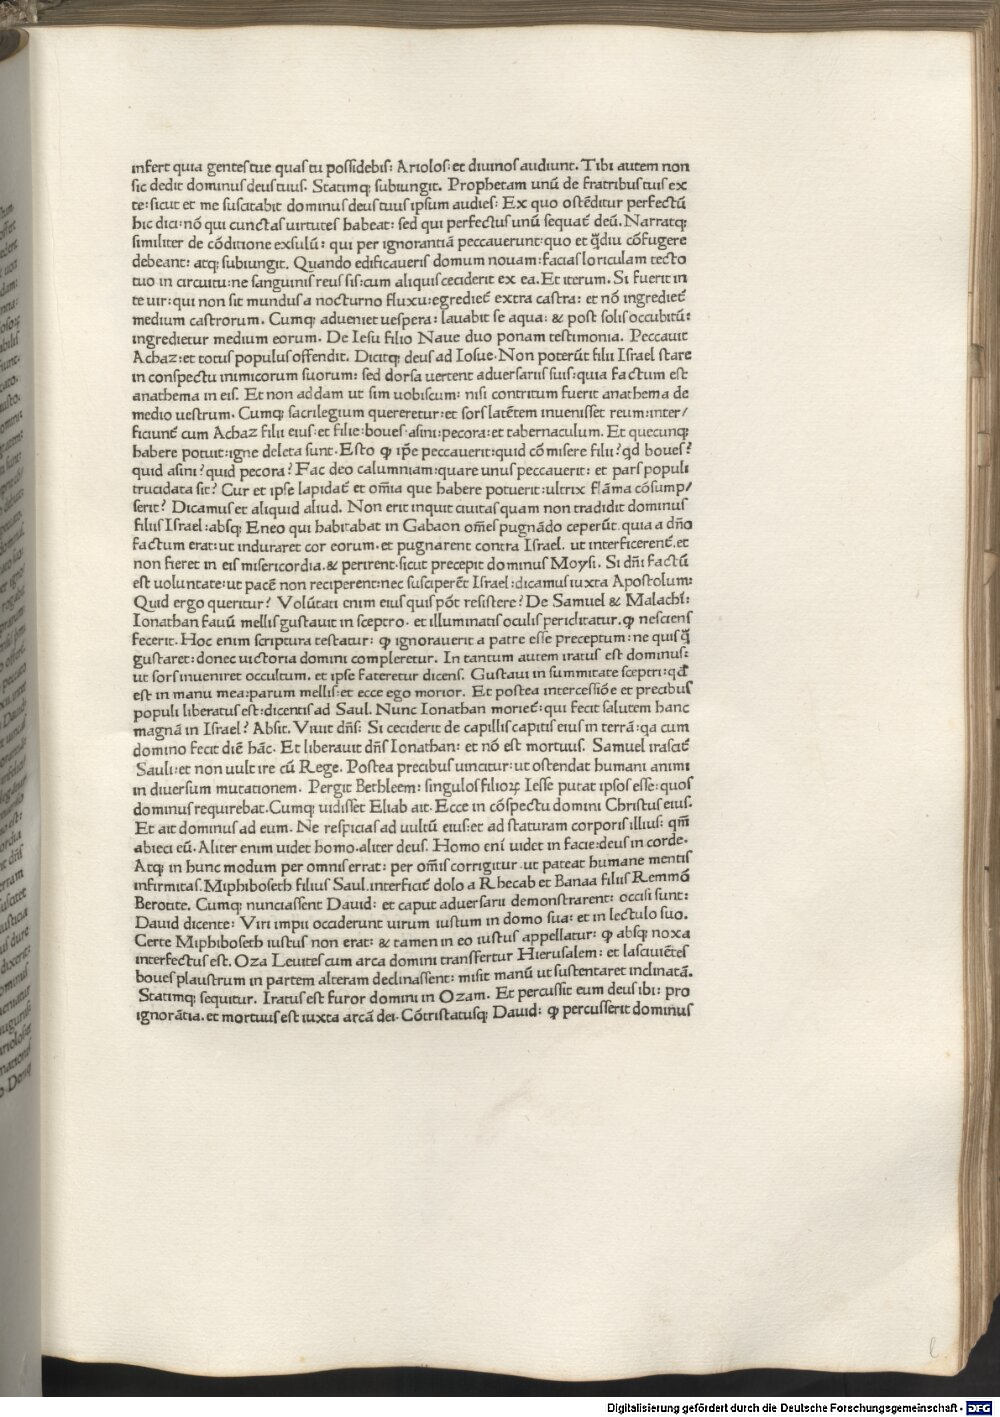 infert quia gentes tue quas tu possidebis: Ariolos: et diuinos audiunt. Tibi autem non
sic dedit dominus deus tuus. Statimq; subiungit. Prophetam unū de fratribus tuis ex
te: sicut et me suscitabit dominus deus tuus ipsum audies: Ex quo ostēditur perfectū
hic dici: nō qui cunctas uirtutes habeat: sed qui perfectus unū sequat̄ deū. Narratq;
similiter de cōditione exsulū: qui per ignorantiā peccauerunt: quo et q̄diu cōfugere
debeant: atq; subiungit. Quando edificaueris domum nouam: facias loriculam tecto
tuo in circuitu: ne sanguinis reus sis: cum aliquis ceciderit ex ea. Et iterum. Si fuerit in
te uir: qui non sit mundus a nocturno fluxu: egrediet̄ extra castra: et nō ingrediet̄
medium castrorum. Cumq; adueniet uespera: lauabit se aqua: & post solis occubitū:
ingredietur medium eorum. De Iesu filio Naue duo ponam testimonia. Peccauit
Achaz: et totus populus offendit. Dicitq; deus ad Iosue. Non poterūt filii Israel stare
in conspectu inimicorum suorum: sed dorsa uertent aduersariis suis: quia factum est
anathema in eis. Et non addam ut sim uobiscum: nisi contritum fuerit anathema de
medio uestrum. Cumq; sacrilegium quereretur: et sors latētem inuenisset reum: inter/
ficiunt̄ cum Achaz filii eius: et filie: boues: asini: pecora: et tabernaculum. Et quecunq;
habere potuit: igne deleta sunt. Esto ꝙ ip̄e peccauerit: quid cōmisere filii? qd boues?
quid asini? quid pecora? Fac deo calumniam: quare unus peccauerit: et pars populi
trucidata sit? Cur et ipse lapidat̄ et om̄ia que habere potuerit: ultrix flāma cōsump/
serit? Dicamus et aliquid aliud. Non erit inquit ciuitas quam non tradidit dominus
filiis Israel: absq; Eneo qui habitabat in Gabaon om̄es pugnādo ceperūt. quia a dn̄o
factum erat: ut induraret cor eorum. et pugnarent contra Israel. ut interficerent̄. et
non fieret in eis misericordia. & perirent. sicut precepit dominus Moysi. Si dn̄i factū
est uoluntate: ut pacē non reciperent: nec susciperēt Israel: dicamus iuxta Apostolum:
Quid ergo queritur? Volūtati enim eius quis pōt resistere? De Samuel & Malachī:
Ionathan fauū mellis gustauit in sceptro. et illuminatis oculis periclitatur. ꝙ nesciens
fecerit. Hoc enim scriptura testatur: ꝙ ignorauerit a patre esse preceptum: ne quis q̄
gustaret: donec uictoria domini compleretur. In tantum autem iratus est dominus:
ut sors inueniret occultum. et ipse fateretur dicens. Gustaui in summitate sceptri: qd̄
est in manu mea: parum mellis: et ecce ego morior. Et postea intercessiōe et precibus
populi liberatus est: dicentis ad Saul. Nunc Ionathan moriet̄: qui fecit salutem hanc
magnā in Israel? Absit. Viuit dn̄s: Si ceciderit de capillis capitis eius in terrā: qa cum
domino fecit diē hāc. Et liberauit dn̄s Ionathan: et nō est mortuus. Samuel irascit̄
Sauli: et non uult ire cū Rege. Postea precibus uincitur: ut ostendat humani animi
in diuersum mutationem. Pergit Bethleem: singulos filioꝝ Iesse putat ipsos esse: quos
dominus requirebat. Cumq; uidisset Eliab ait. Ecce in cōspectu domini Christus eius.
Et ait dominus ad eum. Ne respicias ad uultū eius: et ad staturam corporis illius: qm̄
abieci eū. Aliter enim uidet homo. aliter deus. Homo eni uidet in facie: deus in corde.
Atq; in hunc modum per omnis errat: per om̄is corrigitur. ut pateat humane mentis
infirmitas. Miphiboseth filius Saul. interficit̄ dolo a Rhecab et Banaa filiis Remmō
Berotite. Cumq; nunciassent Dauid: et caput aduersarii demonstrarent: occisi sunt:
Dauid dicente: Viri impii occiderunt uirum iustum in domo sua: et in lectulo suo.
Certe Miphiboseth iustus non erat: & tamen in eo iustus appellatur: ꝙ absq; noxa
interfectus est. Oza Leuites cum arca domini transfertur Hierusalem: et lasciuiētes
boues plaustrum in partem alteram declinassent: misit manū ut sustentaret inclinatā.
Statimq; sequitur. Iratus est furor domini in Ozam. Et percussit eum deus ibi: pro
ignorātia. et mortuus est iuxta arcā dei. Cōtristatusq; Dauid: ꝙ percusserit dominus
Digitalisierung gefördert durch die Deutsche Forschungsgemeinschaft - DFG